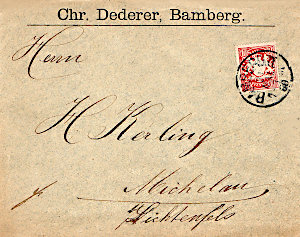 Chr. Dederer, Bamberg.
Herrn
H Kerling
Michelau
Lichtenfels